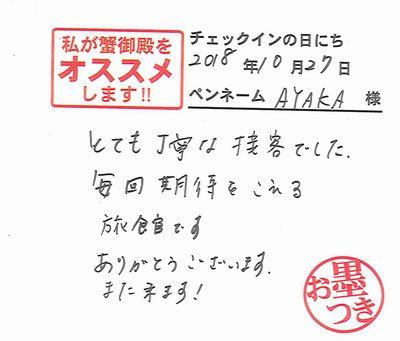 私が蟹御殿を
オススメ
します!!
チェックインの日にち
2018年10月27日
ペンネーム AYAKA 様
とても丁寧な接客でした.
毎回期待をこえる
旅館です
ありがとうございます.
また来ます!
お墨つき